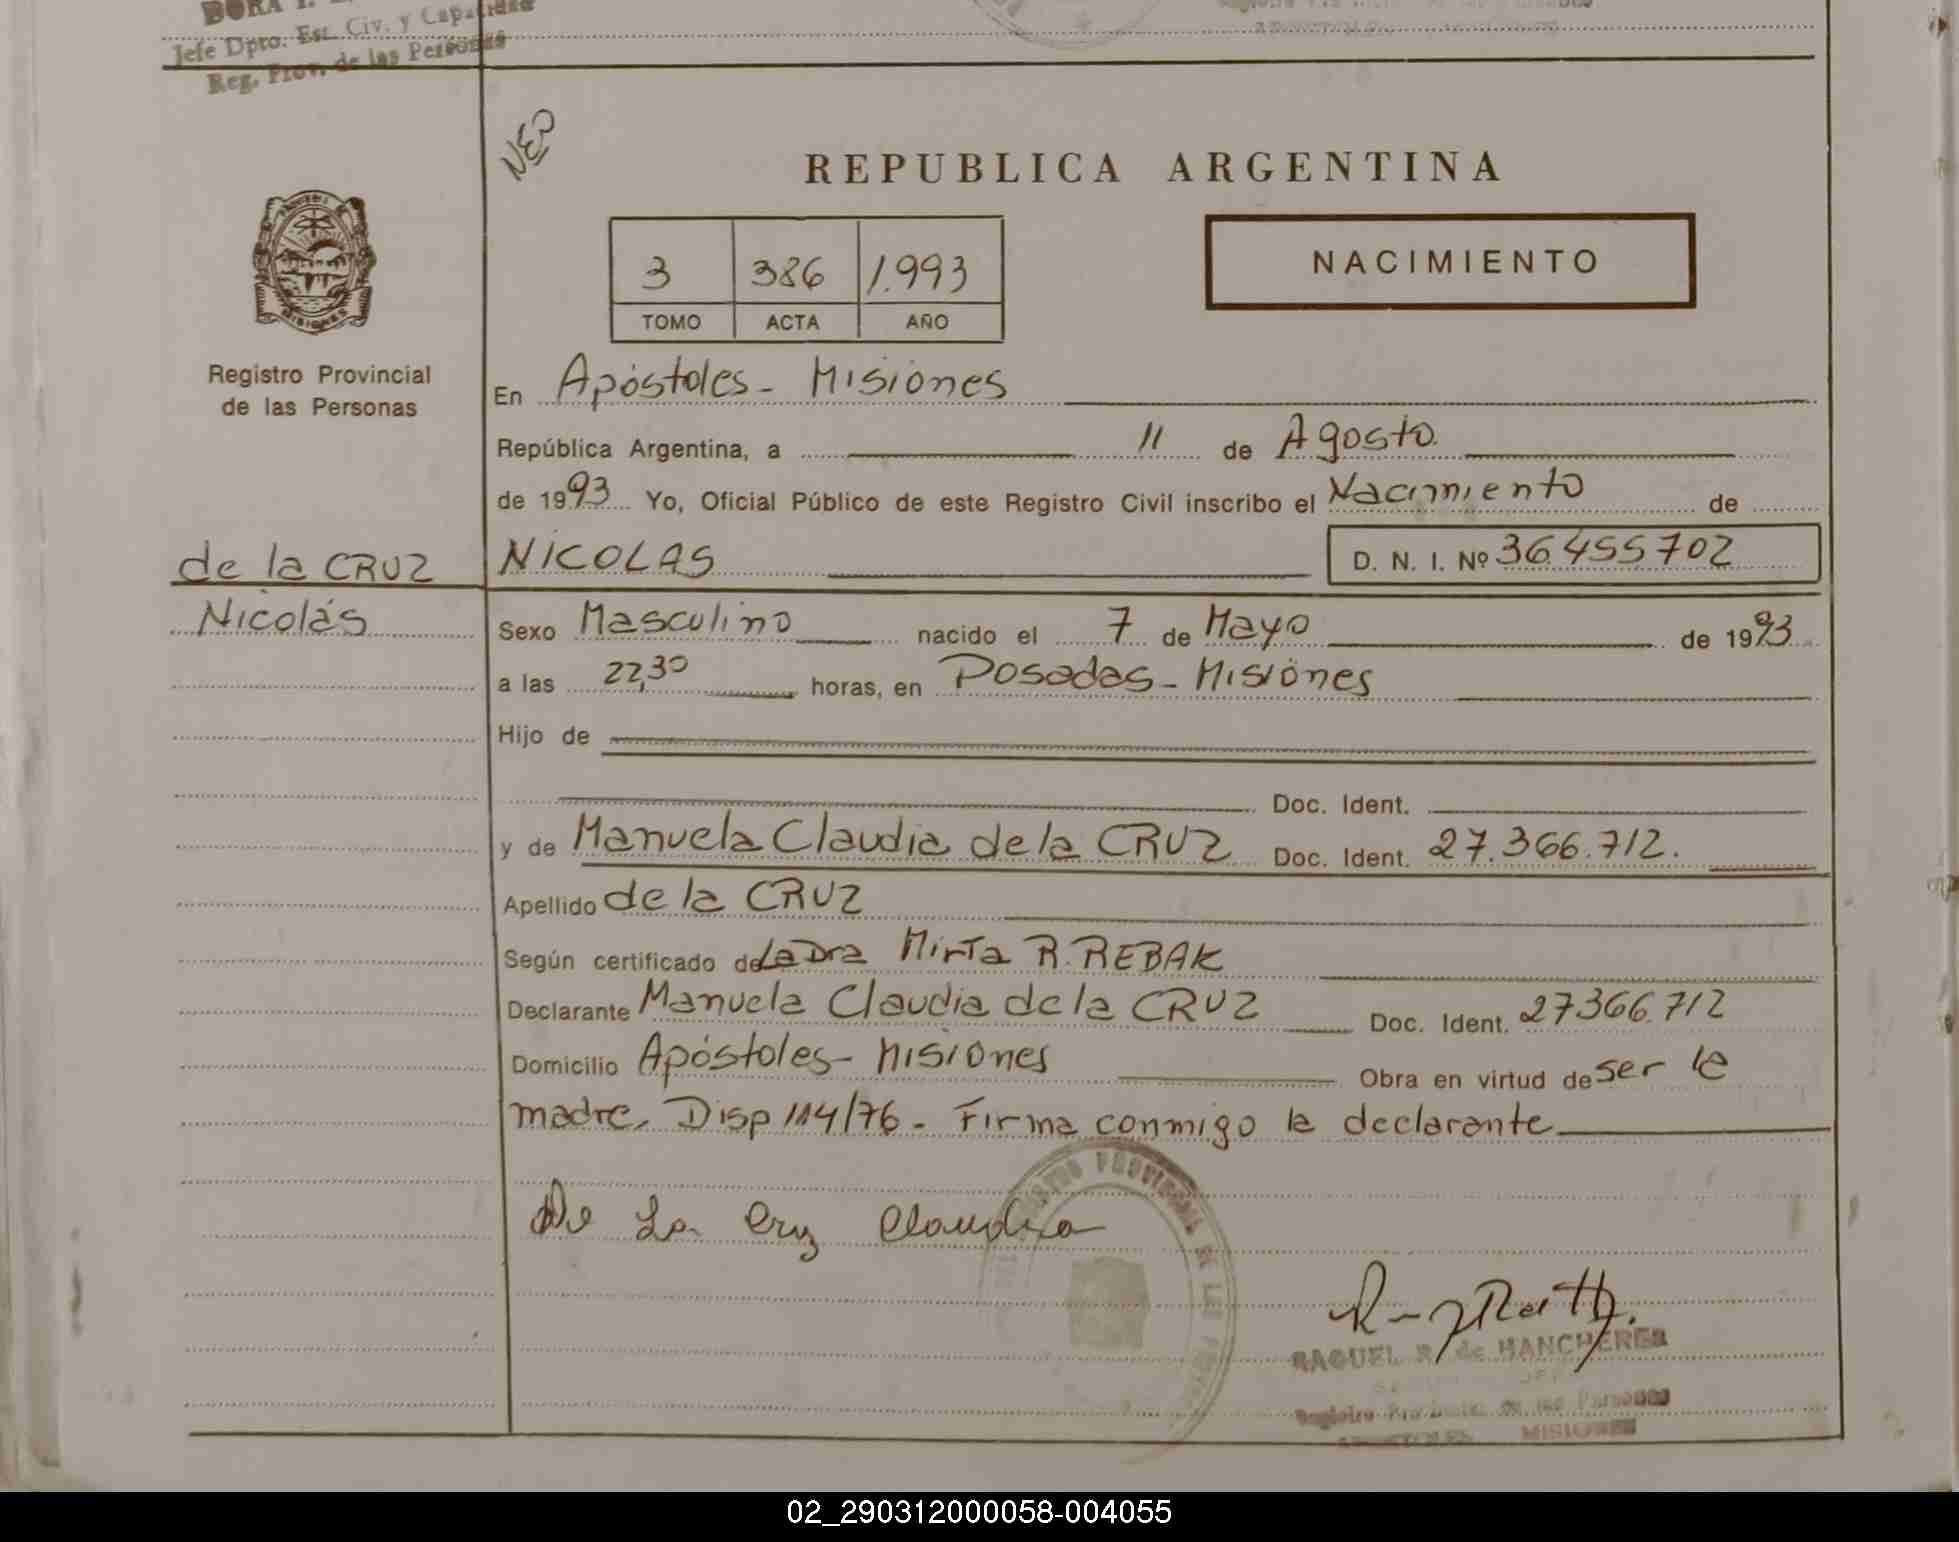 Jefe Dpto. Est. Civ. y Capacidad
Reg. Prov. de las Personas
NEO
REPUBLICA ARGENTINA
NACIMIENTO
3 386 1.993
TOMO ACTA AÑO
MISIONES
Registro Provincial
de las Personas
En Apóstoles - Misiones
República Argentina, a 11 de Agosto
de 1993 Yo, Oficial Público de este Registro Civil inscribo el Nacimiento de
de la CRUZ NICOLAS D. N. I. Nº 36.455702
Nicolás
Sexo Masculino nacido el 7 de Mayo de 1993
a las 22,30 horas, en Posadas - Misiones
Hijo de
Doc. Ident.
y de Manuela Claudia de la CRUZ Doc. Ident. 27.366.712.
Apellido de la CRUZ
Según certificado de La Dra Mirta R. REBAK
Declarante Manuela Claudia de la CRUZ Doc. Ident. 27366.712
Domicilio Apóstoles - Misiones Obra en virtud de ser la
madre. Disp 114/76 - Firma conmigo la declarante
De La Cruz Claudia
REGISTRO PROVINCIAL DE LAS
RAQUEL R. de MANCHERES
Registro Provincial de las Personas
APOSTOLES MISIONES
02_290312000058-004055